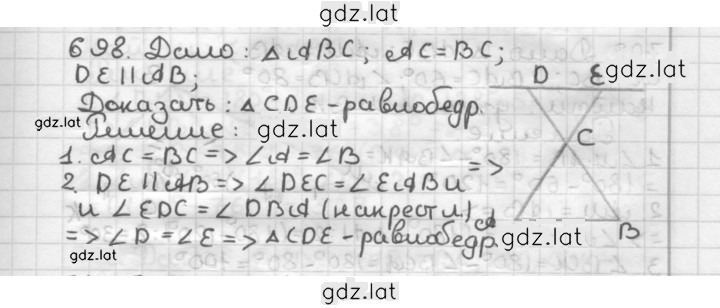 gdz.lat
698. Дано: △ABC; AC=BC;
DE∥AB;
Доказать: △CDE-равнобедр.
Решение:
1. AC=BC=>∠A=∠B
2. DE∥AB=>∠DEC=∠EAB и
и ∠EDC=∠DBA (накрест л.)
=>∠D=∠E=>△CDE-равнобедр.
=>
D E
C
A
B
gdz.lat
gdz.lat
gdz.lat
gdz.lat
gdz.lat
gdz.lat